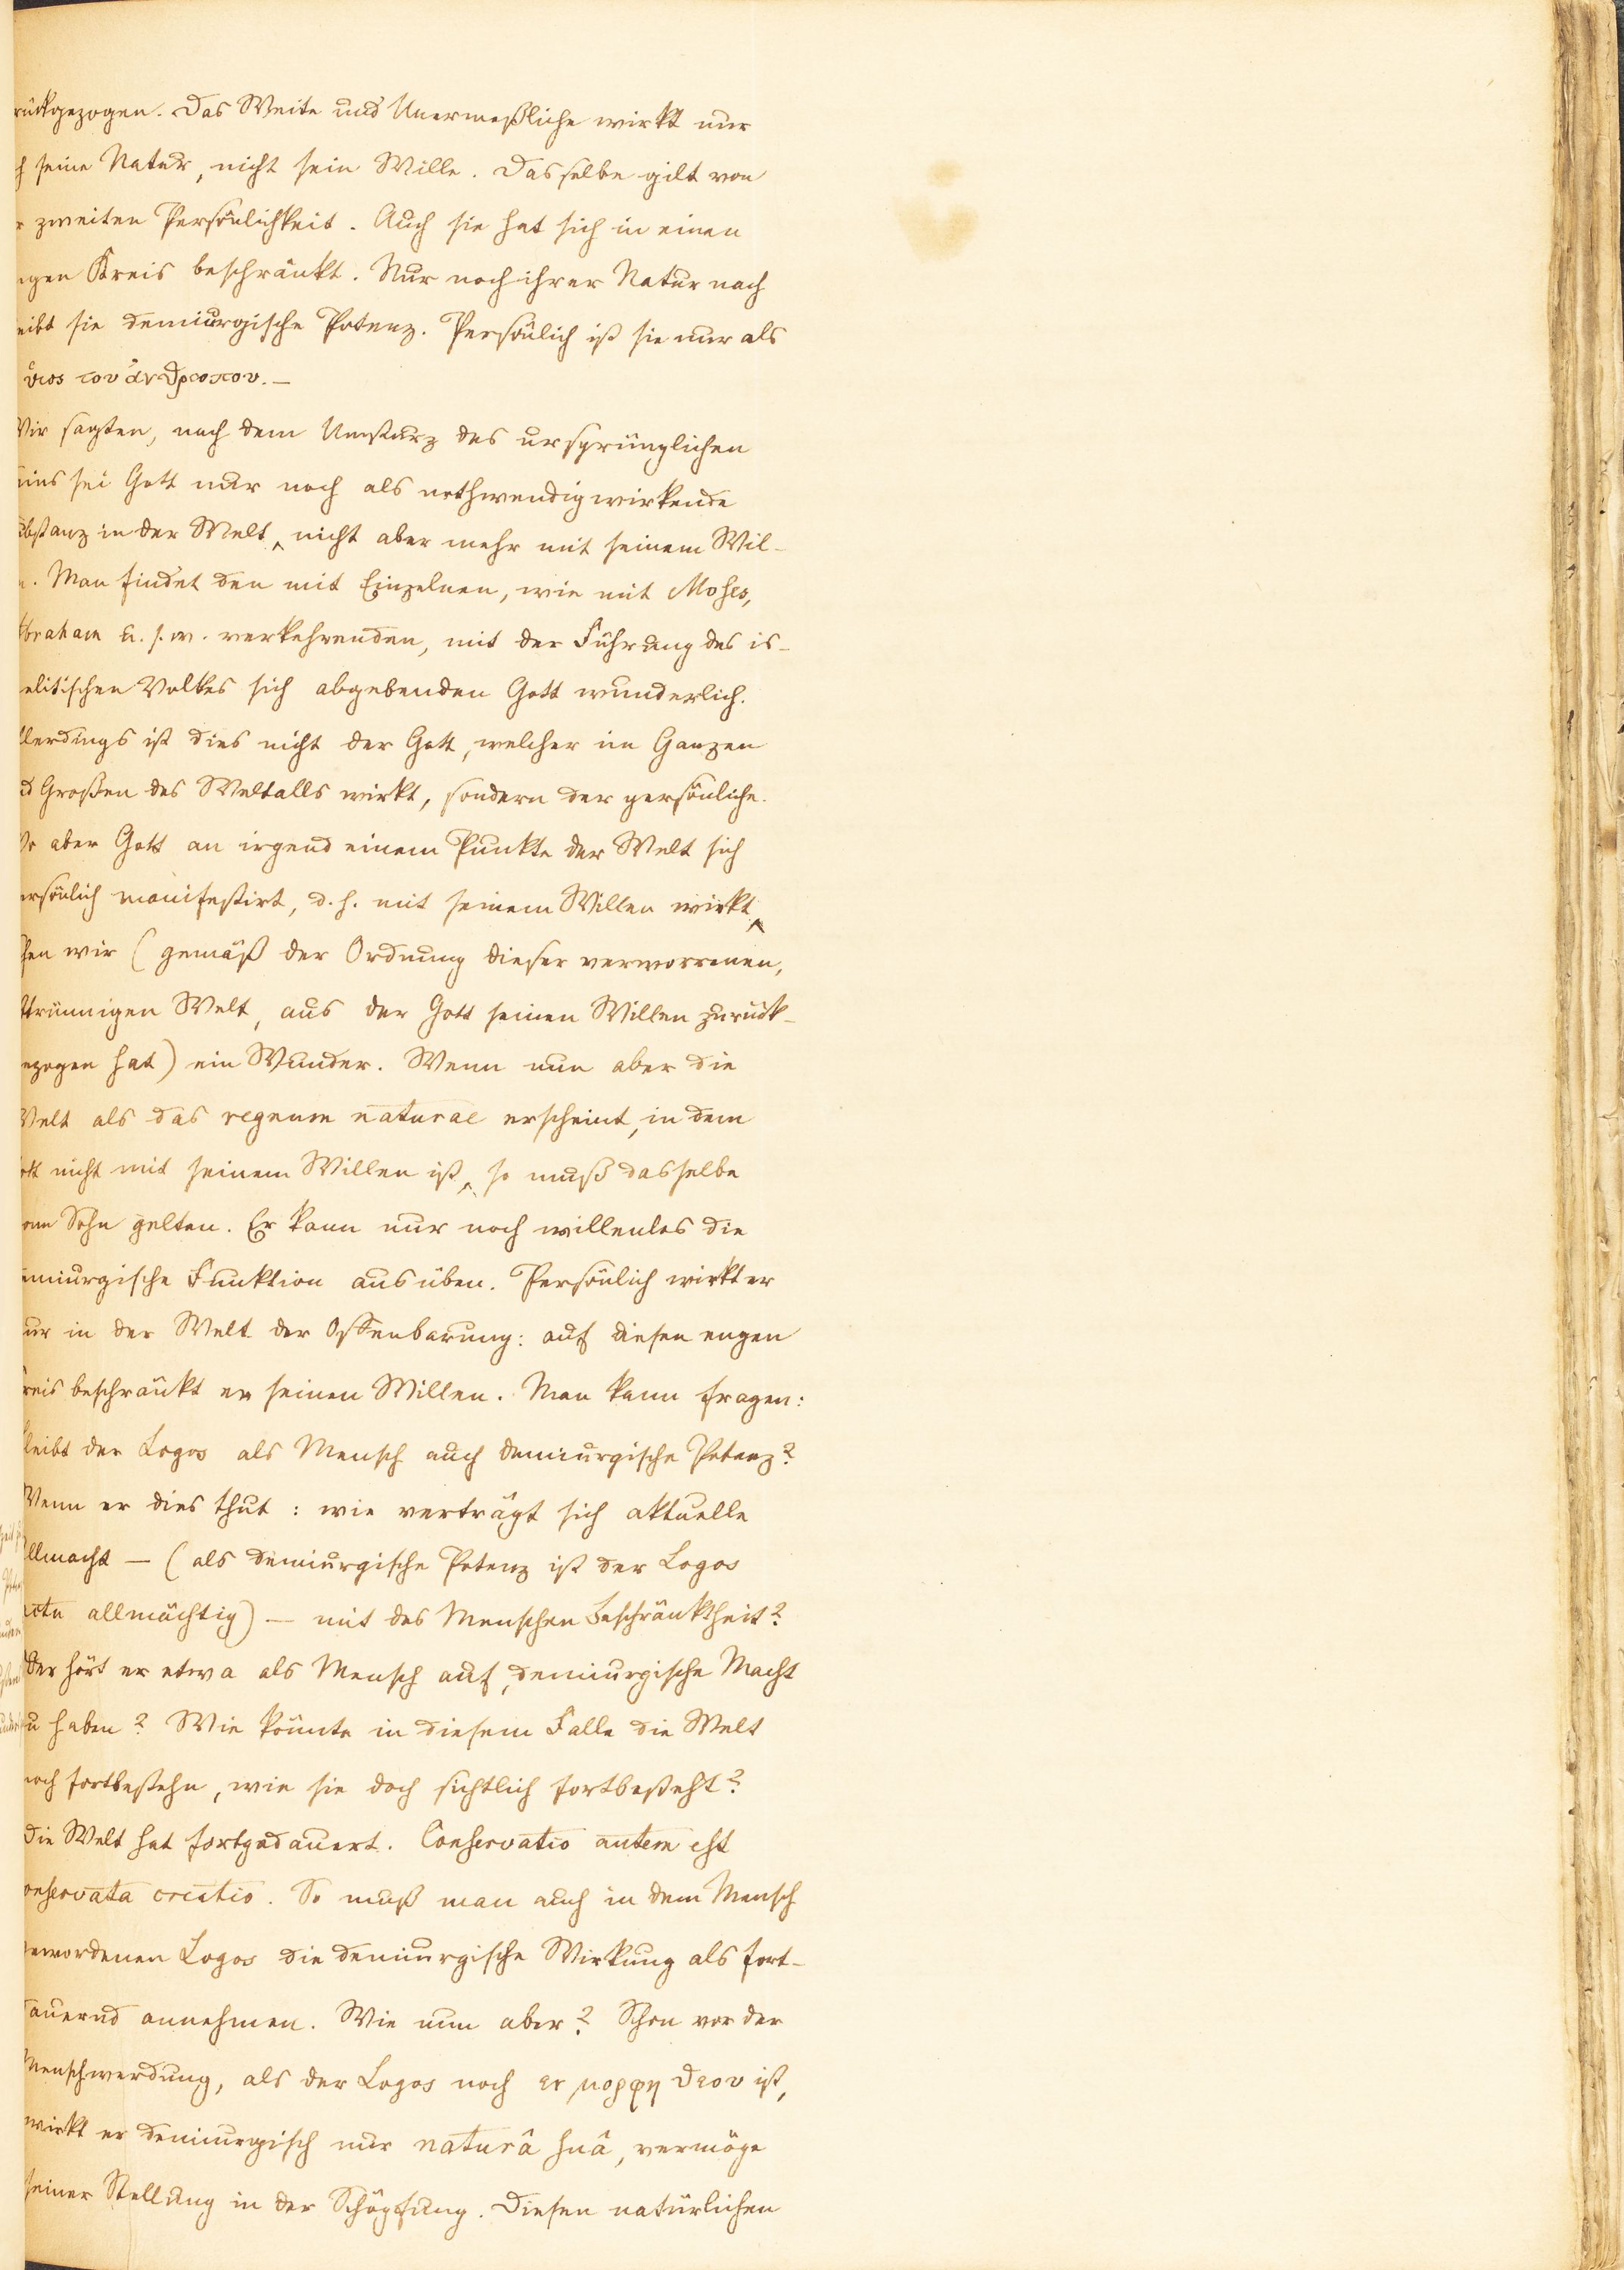 rückgezogen. Das Weite und Unermeßliche wirkt nur
h seine Natur, nicht sein Wille. Dasselbe gilt von
r zweiten Persönlichkeit. Auch sie hat sich in einen
ngen Kreis beschränkt. Nur noch ihrer Natur nach
eibt sie demiurgische Potenz. Persönlich ist sie nur als
υἱος του ἀνθρωπου. —
Wir sagten, nach dem Umsturz des ursprünglichen
eins sei Gott nur noch als nothwendig wirkende
ubstanz in der Welt, nicht aber mehr mit seinem Wil-
n. Man findet den mit Einzelnen, wie mit Moses,
Abraham u. s. w. verkehrenden, mit der Führung des is-
elitischen Volkes sich abgebenden Gott wunderlich.
llerdings ist dies nicht der Gott, welcher im Ganzen
d Großen des Weltalls wirkt, sondern der persönliche.
Wo aber Gott an irgend einem Punkte der Welt sich
ersönlich manifestirt, d. h. mit seinem Willen wirkt,
hen wir (gemäß der Ordnung dieser verworrenen,
btrünnigen Welt, aus der Gott seinen Willen zurück-
ezogen hat) ein Wunder. Wenn nun aber die
Welt als das regnum naturae erscheint, in dem
ott nicht mit seinem Willen ist, so muß dasselbe
om Sohn gelten. Er kann nur noch willenlos die
emiurgische Funktion ausüben. Persönlich wirkt er
ur in der Welt der Offenbarung: auf diesen engen
reis beschränkt er seinen Willen. Man kann fragen:
leibt der Logos als Mensch auch demiurgische Potenz?
Wenn er dies thut: wie verträgt sich aktuelle
llmacht — (als demiurgische Potenz ist der Logos
actu allmächtig) — mit des Menschen Beschränktheit?
der hört er etwa als Mensch auf, demiurgische Macht
u haben? Wie könnte in diesem Falle die Welt
noch fortbestehn, wie sie doch sichtlich fortbesteht?
Die Welt hat fortgedauert. Conservatio autem est
onservata creatio. So muß man auch in dem Mensch
gewordenen Logos die demiurgische Wirkung als fort-
dauernd annehmen. Wie nun aber? Schon vor der
Menschwerdung, als der Logos noch εν μορφη θεου ist,
wirkt er demiurgisch nur naturâ suâ, vermöge
seiner Stellung in der Schöpfung. Diesen natürlichen